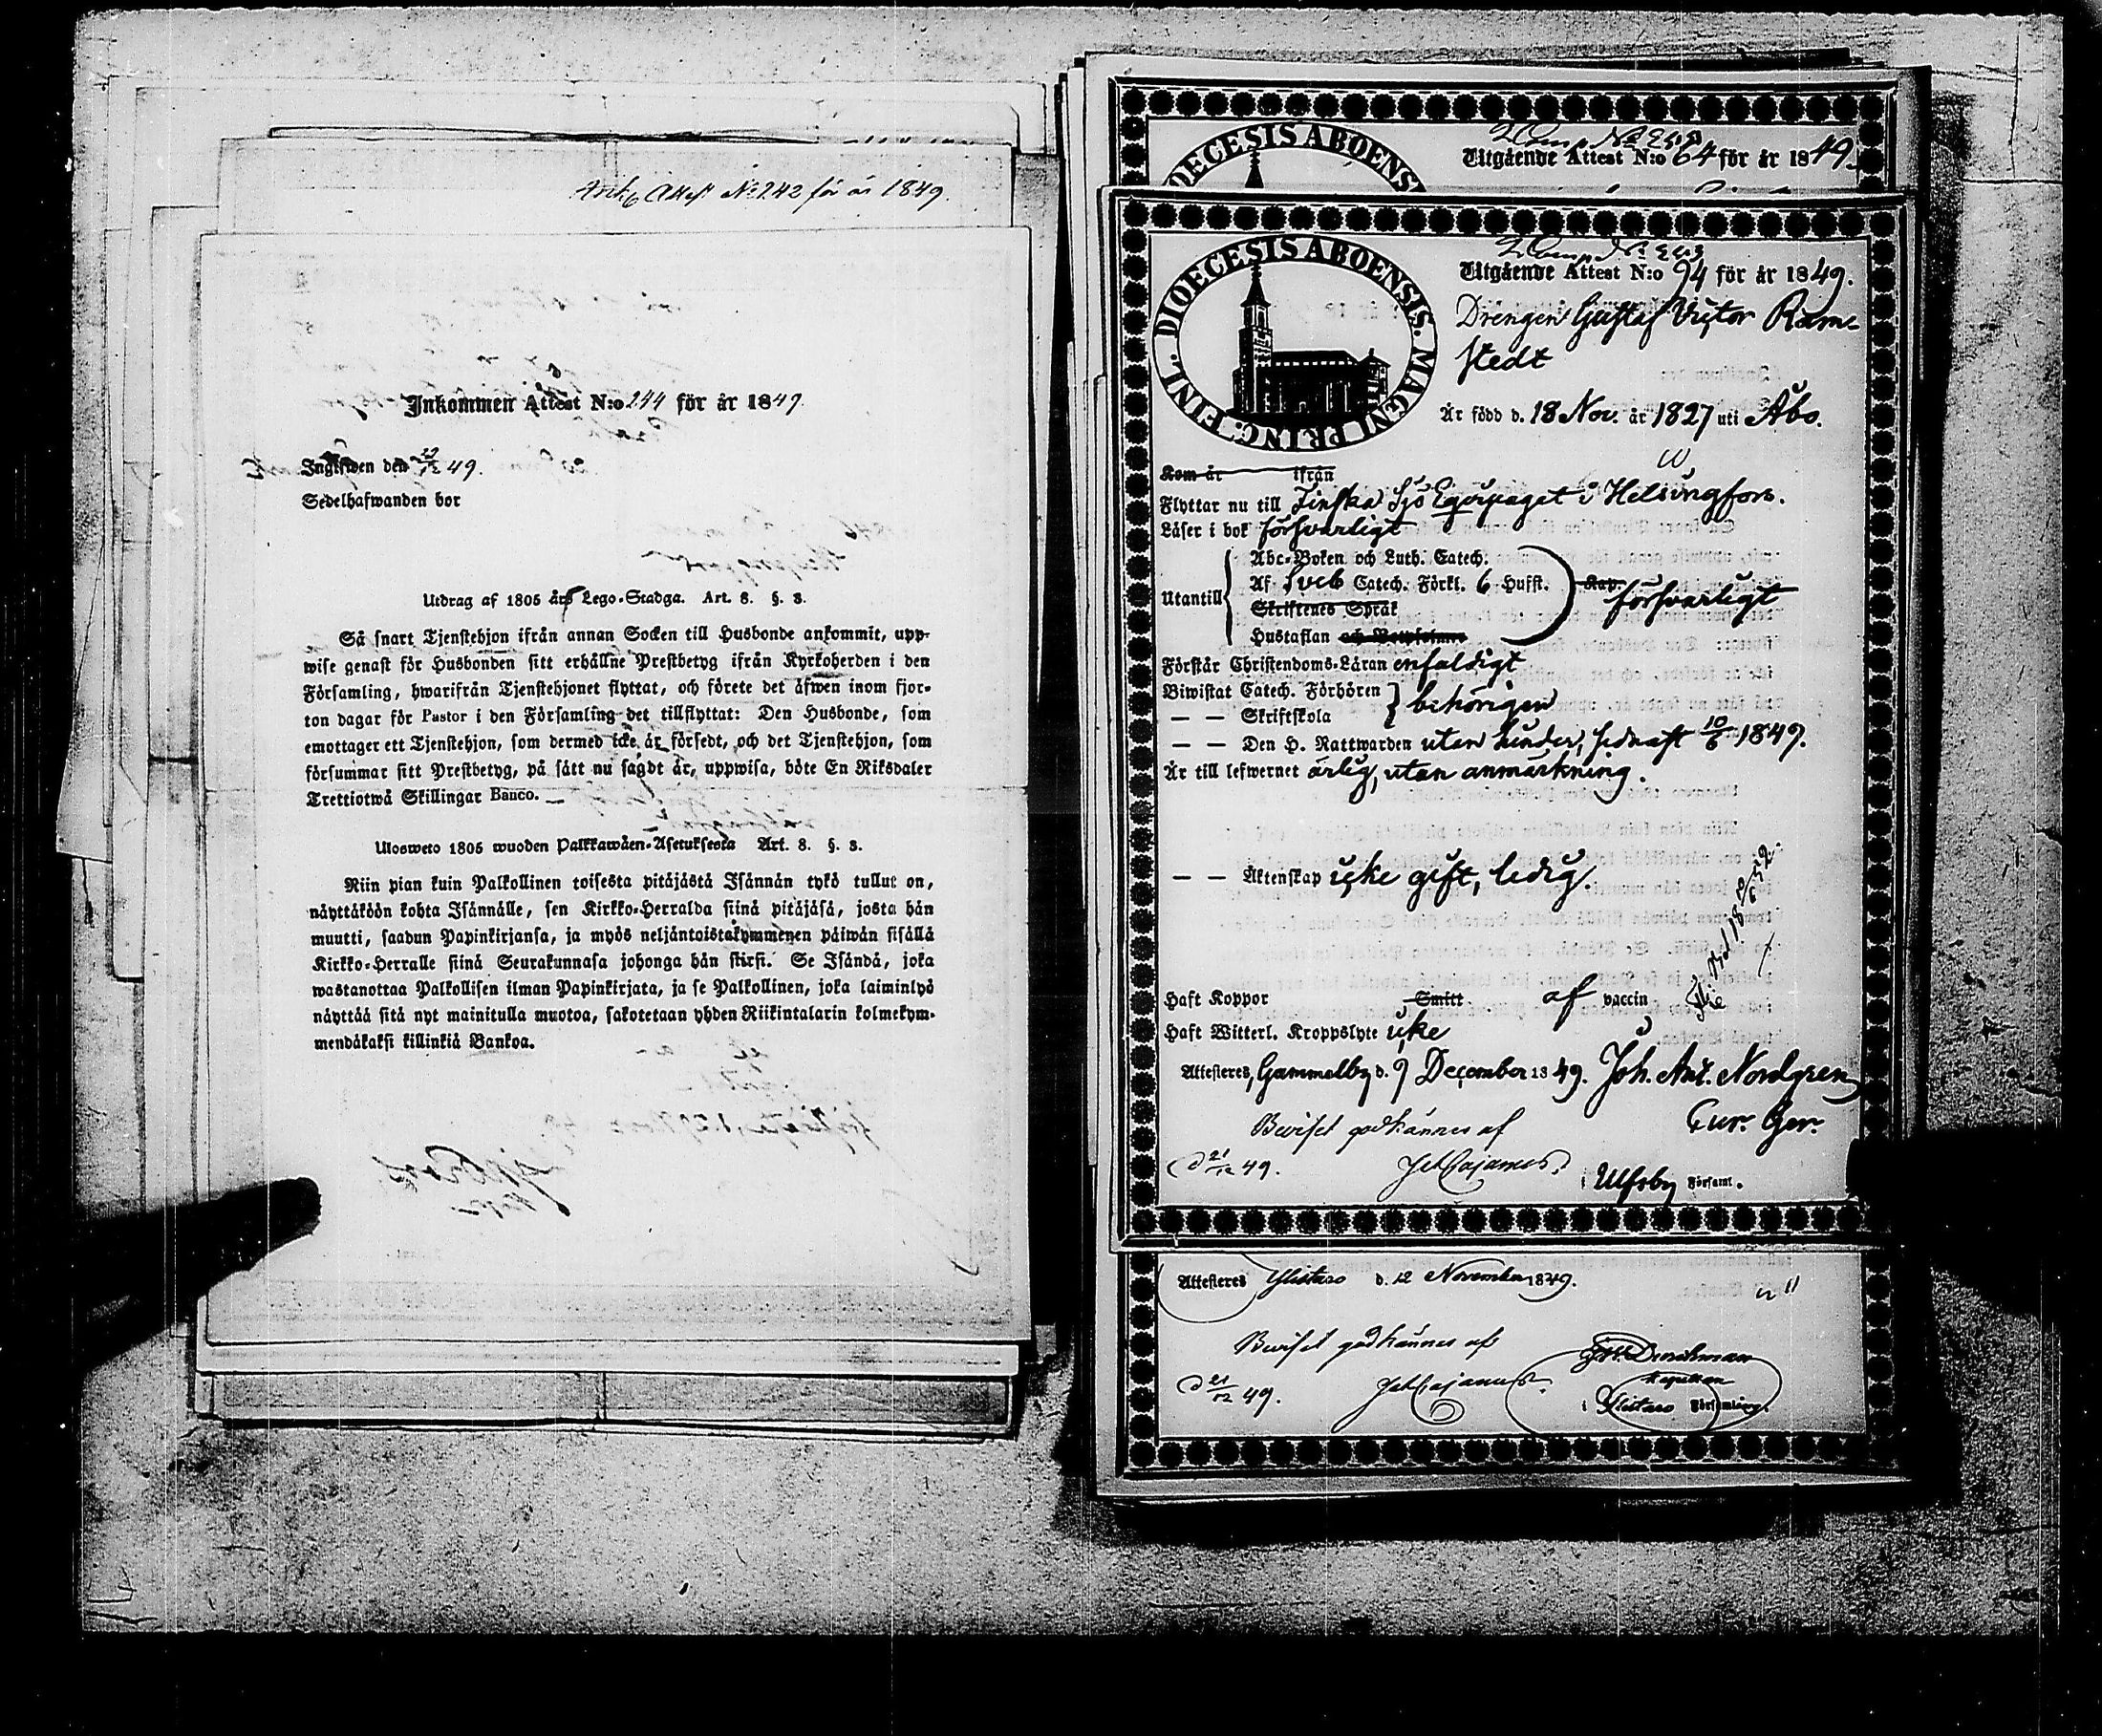 Attest No 242 för år 1849.
Inkommen Attest N:o 244 för år 1849.
Ingifwen den 29/12 49.
Sedelhafwanden bor
Utdrag af 1805 års Lego-Stadga. Art. 8. §. 3.
Så snart Tjenstehjon ifrån annan Socken till Husbonde ankommit, upp-
wise genast för Husbonden sitt erhållne Prestbetyg ifrån Kyrkoherden i den
Församling, hwarifrån Tjenstehjonet flyttat, och förete det äfwen inom fjor-
ton dagar för Pastor i den Församling det tillflyttat: Den Husbonde, som
emottager ett Tjenstehjon, som dermed icke är försedt, och det Tjenstehjon, som
försummar sitt Prestbetyg, på sätt nu sagdt är, uppwisa, böte En Riksdaler
Trettiotwå Skillingar Banco.
Ulosweto 1805 wuoden Palkkawäen-Asetuksesta Art. 8. §. 3.
Niin pian kuin Palkollinen toisesta pitäjästä Isännän tykö tullut on,
näyttäköön kohta Isännälle, sen Kirkko-Herralda siinä pitäjäsä, josta hän
muutti, saadun Papinkirjansa, ja myös neljäntoistakymmenen päiwän sisällä
Kirkko-Herralle siinä Seurakunnasa johonga hän siirsi. Se Isändä, joka
wastanottaa Palkollisen ilman Papinkirjata, ja se Palkollinen, joka laiminlyö
näyttää sitä nyt mainitulla muotoa, sakotetaan yhden Riikintalarin kolmekym-
mendäkaksi killinkiä Bankoa.
DIOECESIS ABOENS
Utgående Attest N:o 64 för år 1849.
DIOECESIS ABOENSIS. MAGNI PRINC. FINL.
Utgående Attest N:o 94 för år 1849.
Drengen Gustaf Victor Ram-
stedt
Är född d. 18 Nov. år 1827 uti Åbo.
Kom år ifrån
Flyttar nu till Finska Sjö Equipaget i Helsingfors.
Läser i bok försvarligt
Utantill
Abc-Boken och Luth. Catech.
Af Sveb Catech. Förkl. 6 Hufst.
Skriftenes Språk
Hustaflan
Kap. försvarligt
Förstår Christendoms-Läran enfaldigt
Biwistat Catech. Förhören
— — Skriftskola
behörigen
— — Den H. Nattwarden utan hinder, sednast 10/6 1849.
Är till lefwernet ärlig, utan anmärkning.
— — Äktenskap icke gift, ledig.
Haft Koppor Smitt af vaccin
Haft Witterl. Kroppslyte icke
Attesteres, Gammelby d. 9 December 1849. Joh. Ant. Nordgren
Cur. Ger.
Beviset godkännes af
d 21/12 49. Cajanus
i Ulfsby Församl.
Attesteres Ylistaro d. 12 November 1849.
Beviset godkännes af
d 21/12 49. Cajanus
Durchman
Kapellan
i Ylistaro Församling.